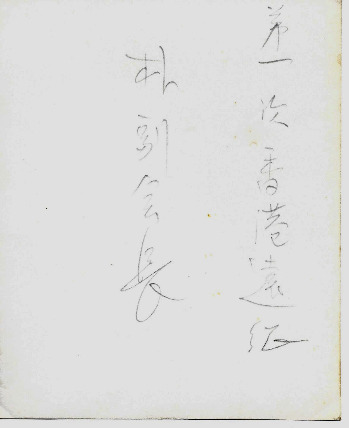 第一次香港遠征
朴副会長